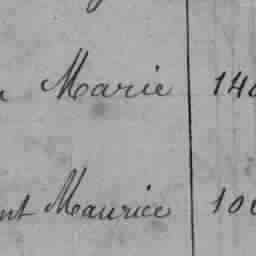 Marie 140
nt Maurice 100